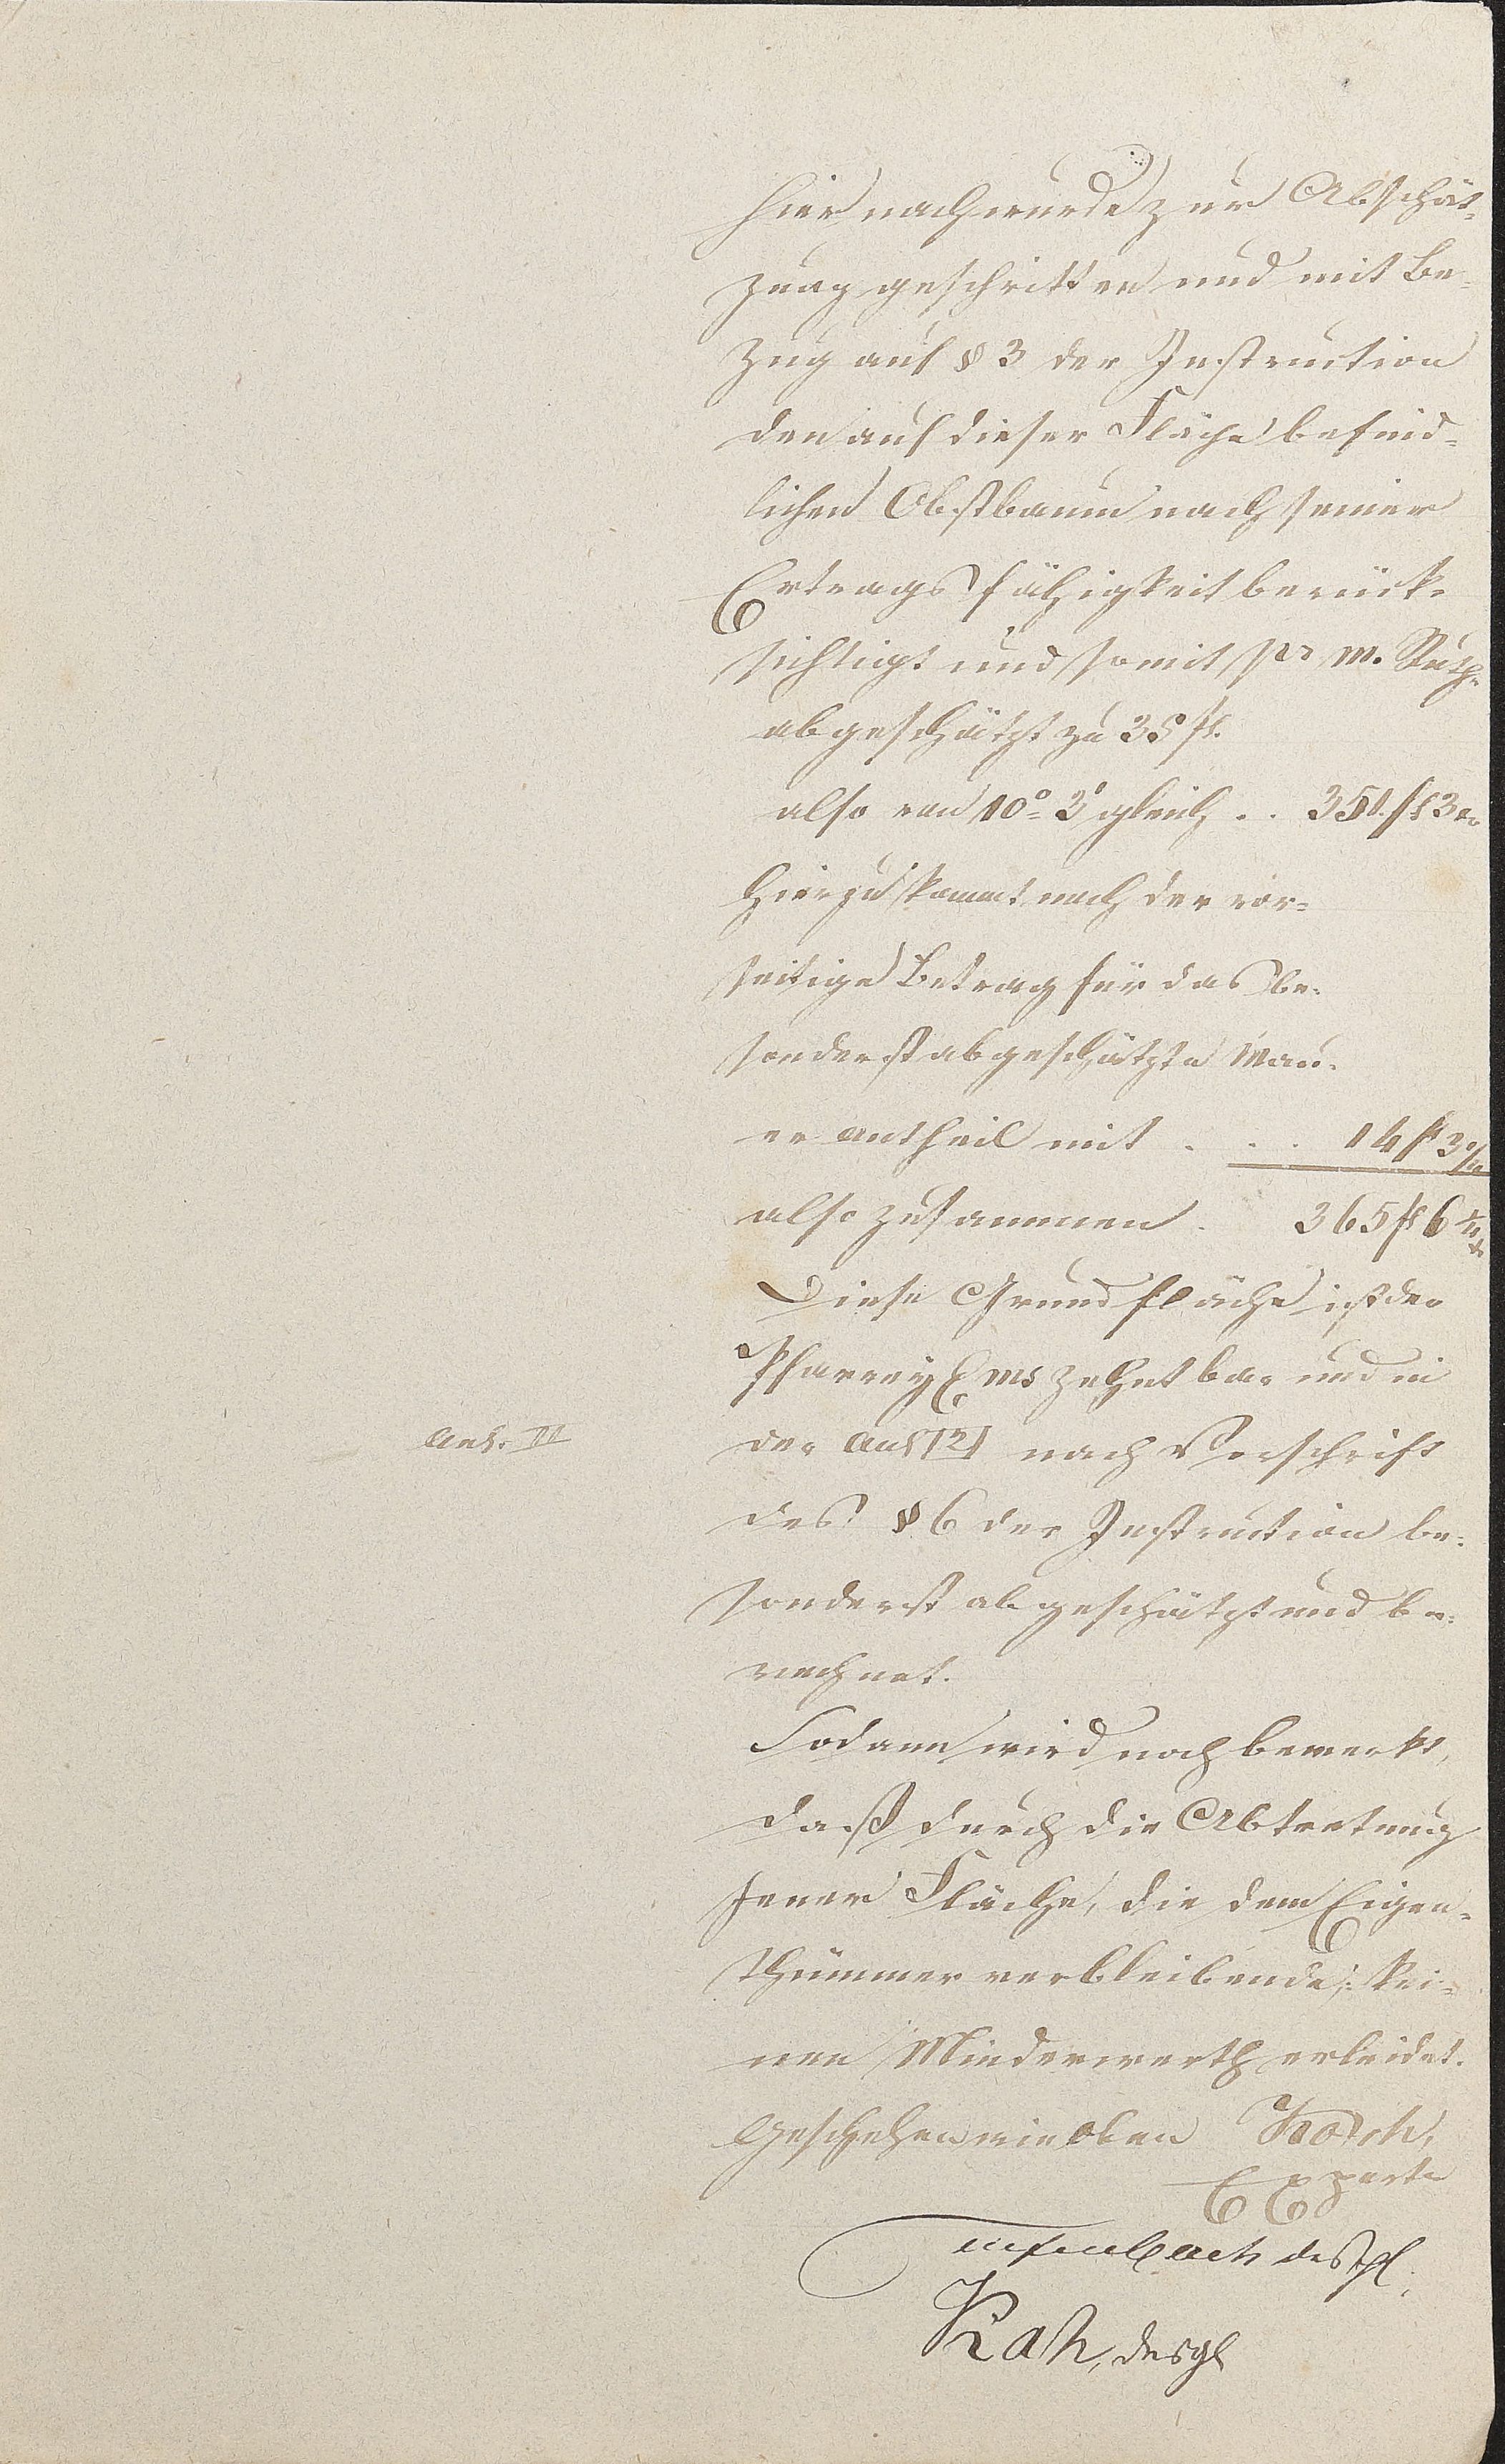 hiernach wurde zur Abschät-
zung geschritten und mit Be-
zug auf § 3 der Instruction
den auf dieser Fläche befind-
lichen Obstbaum nach seiner
Ertragsfähigkeit berück-
sichtigt und somit pr m. Ruth.
abgeschätzt zu 35 fl.
also von 10° 3' gleich . . 351 fl 3
Hierzu kommt noch der vor-
seitige Betrag für das be-
sonderst abgeschätzte Mau-
er antheil mit . . . 14 fl 3
also zusammen . 365 fl 6
Diese Grundfläche ist der
Pfarrey Ems zehntbar und in
Anl. III
der Anl nach Vorschrift
des § 6 der Instruction be-
sonderst abgeschätzt und be-
rechnet.
Sodann wird noch bemerkt,
daß durch die Abtretung
jener Fläche, die dem Eigen-
thümmer verbleibende, kei-
nen Minderwerth erleidet.
Geschehen wie oben
Experte
desgl.
desgl